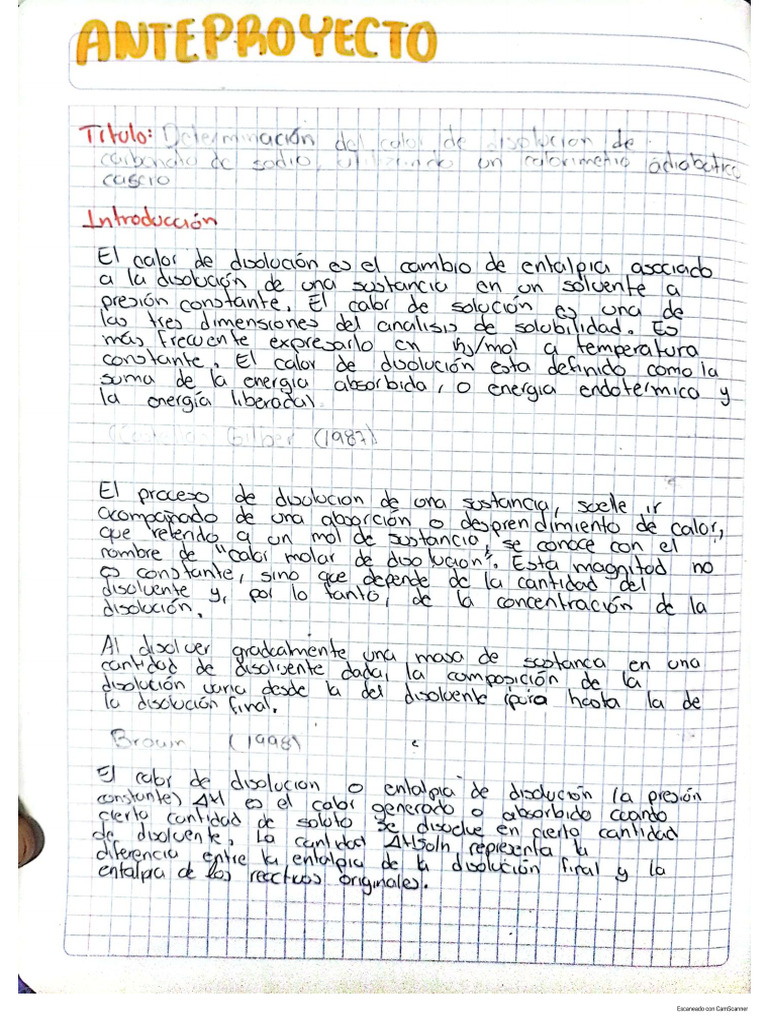 ANTEPROYECTO
Título: Determinación del calor de disolución de
carbonato de sodio, utilizando un calorimetro adiabatico
casero
Introducción
El calor de disolución es el cambio de entalpia asociado
a la disolución de una sustancia en un solvente a
presión constante. El calor de solución es una de
las tres dimensiones del analisis de solubilidad. Es
más frecuente expresarlo en kJ/mol a temperatura
constante. El calor de disolución esta definido como la
suma de la energia absorbida, o energia endotermica y
la energía liberada.
Gilber (1987)
El proceso de disolucion de una sustancia, suele ir
acompañado de una absorción o desprendimiento de calor,
que referido a un mol de sustancio, se conoce con el
nombre de "calor molar de disolucion". Esta magnitud no
es constante, sino que depende de la cantidad del
disolvente y, por lo tanto, de la concentración de la
disolución.
Al disolver gradualmente una masa de sustanca en una
cantidad de disolvente dada, la composición de la
disolución varia desde la del disolvente puro hasta la de
la disolución final.
Brown (1998)
El calor de disolucion o entalpia de disolución (a presión
constante) ΔH es el calor generado o absorbido cuando
cierto cantidad de soluto se disuelve en cierto cantidad
de disolvente. La cantidad ΔHsoln representa la
diferencia entre la entalpia de la disolución final y la
entalpia de los reactivos originales.
Escaneado con CamScanner